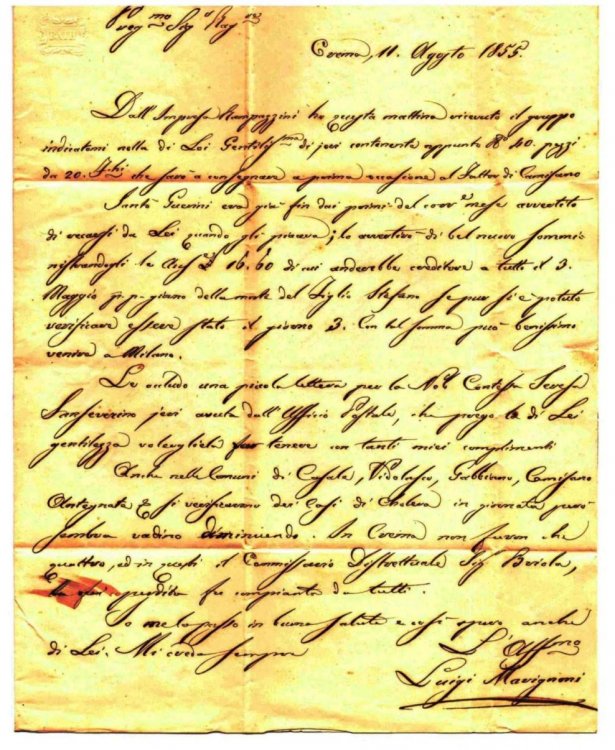 Preg.mo Sig.r Rag.re
Crema, 11. Agosto 1855.
Dall'Impresa Rampazzini ho questa mattina ricevuto il gruppo
indicatomi nella di Lei Gentiliss.ma di jeri contenente appunto N.o 40. pezzi
da 20. che sarà a consegnare a prima occasione al Fattor di Camisano
Santo Guerini era già fin dai primi del corr.e mese avvertito
di recarsi da Lei quando gli piaceva; lo avvertirò di bel nuovo sommi
nistrandogli le 16.60 di cui anderebbe creditore a tutti il 3.
Maggio p.p. giorno della morte del Figlio Stefano se pur si è potuto
verificare essere stato il giorno 3. Con tal somma può benissimo
venire a Milano.
Le accludo una piccola lettera per la Nob. Contessa Teresa
Sanseverino jeri avuta dall'Ufficio Postale, che prego la di Lei
gentilezza volergliela far tenere con tanti miei complimenti
Anche nelle Comuni di Casale, Vidolasco, Gabbiano, Camisano
Antegnate & si verificarono dei Casi di Cholera in giornata però
sembra vadino diminuendo. In Crema non furon che
quattro, ed in questi il Commissario Distrettuale Sig. Briola,
La cui perdita fu compianta da tutti.
Io me la passo in buona salute e così spero anche
di Lei. Mi creda sempre
L'Aff.mo
Luigi Marignoni